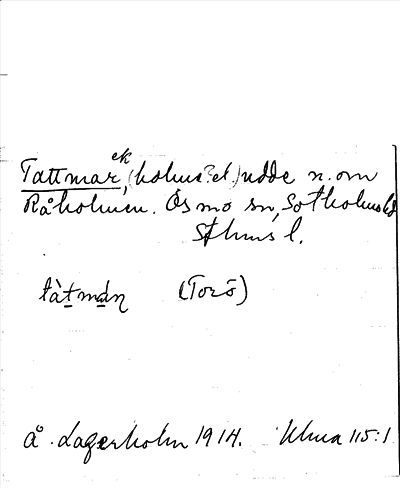 ek
Tattmar, (holme? el.) udde n. om
Råholmen. Ösmo sn, Sotholms hd
Sthms l.
(Torö)
Å. Lagerholm 1914. Ulma 115:1